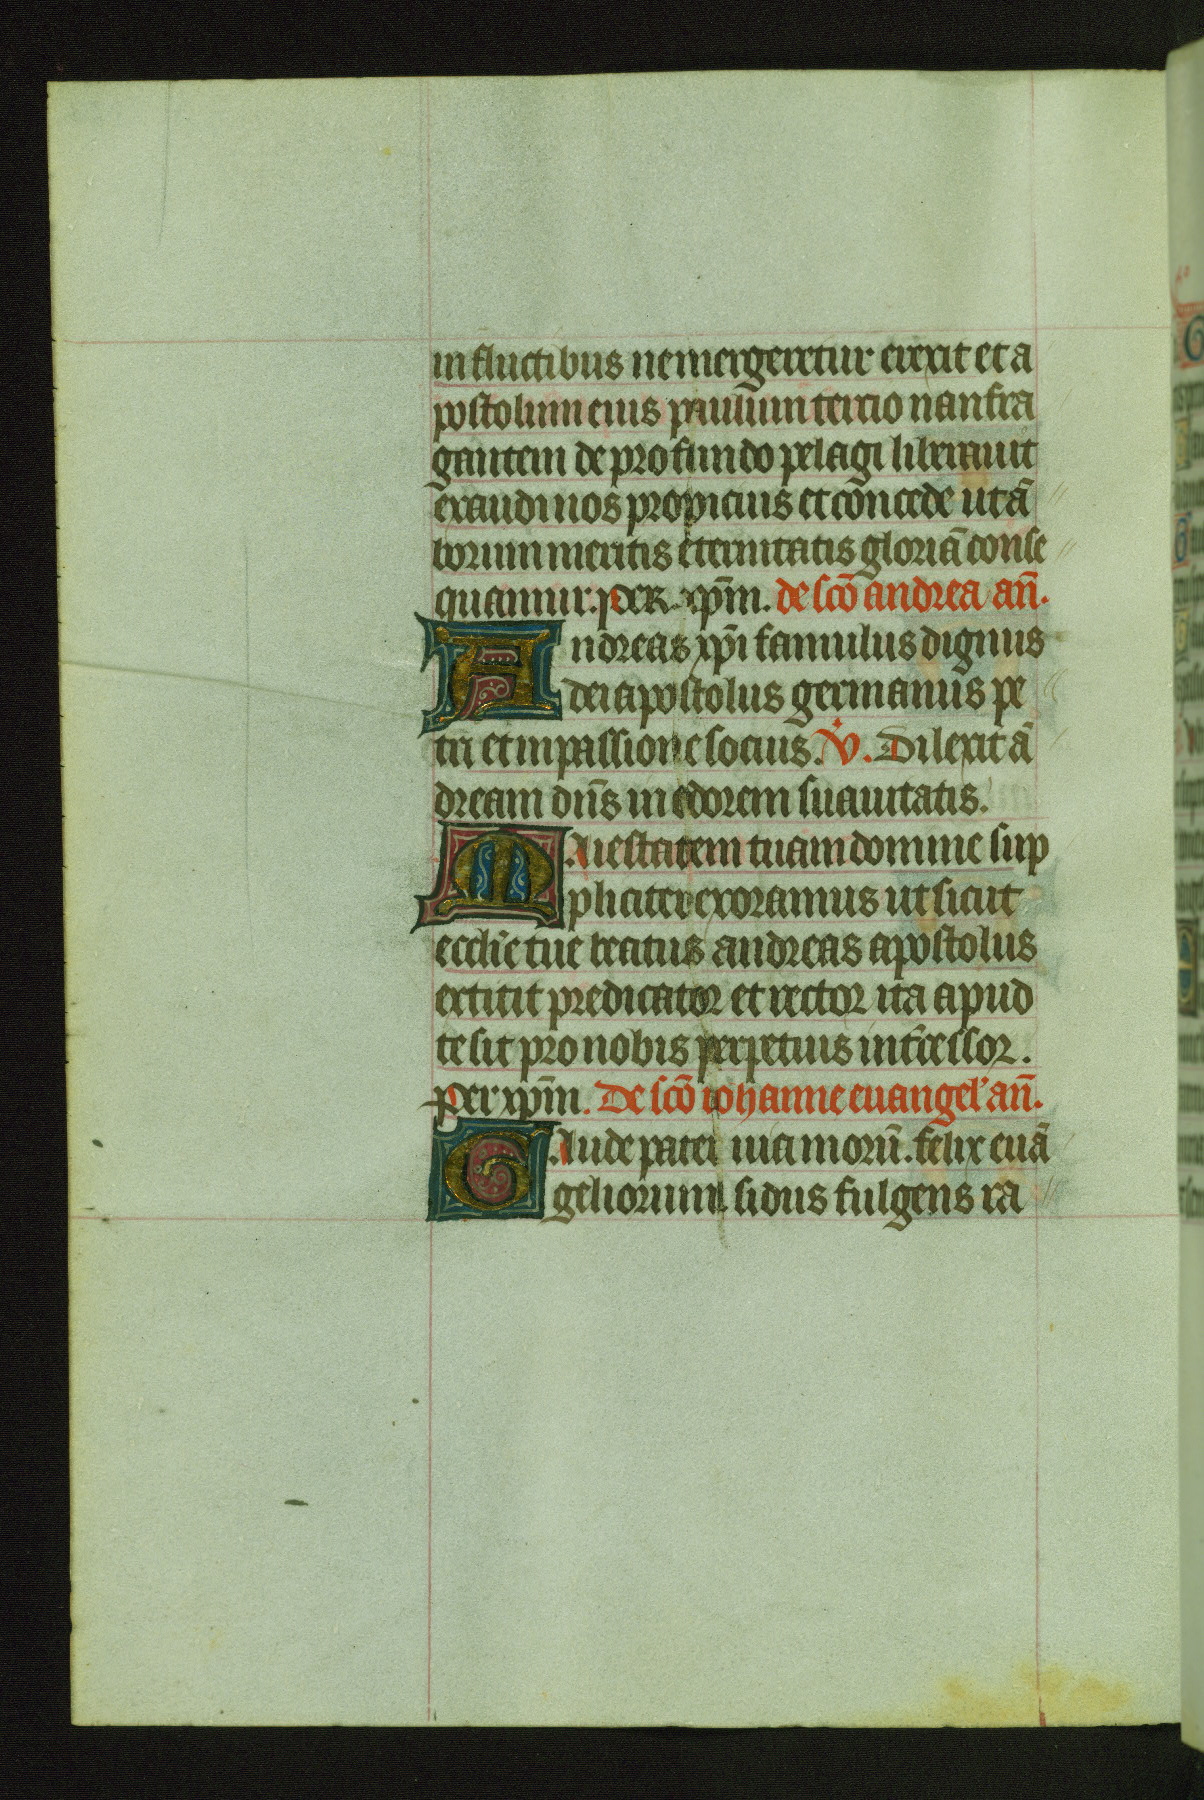 in fluctibus ne mergeretur erexit et a
postolum eius paulum tercio naufra
gantem de profundo pelagi liberauit
exaudi nos propicius et concede ut ā
borum meritis eternitatis gloriā conse
quamur. per xpm̄. de scō andrea an̄.
Andreas xpī famulus dignus
dei apostolus germanus pe
tri et in passione socius. V̇. Dilexit ā
dream dn̄s in odorem suauitatis.
Maiestatem tuam domine sup
pliciter exoramus ut sicut
eccl̄ie tue beatus andreas apostolus
extitit predicator et rector ita apud
te sit pro nobis perpetuus int̄cessor.
Per xpm̄. De scō iohanne euangel' an̄.
Gaude pater uia morū. felix euā
geliorum sidus fulgens ra